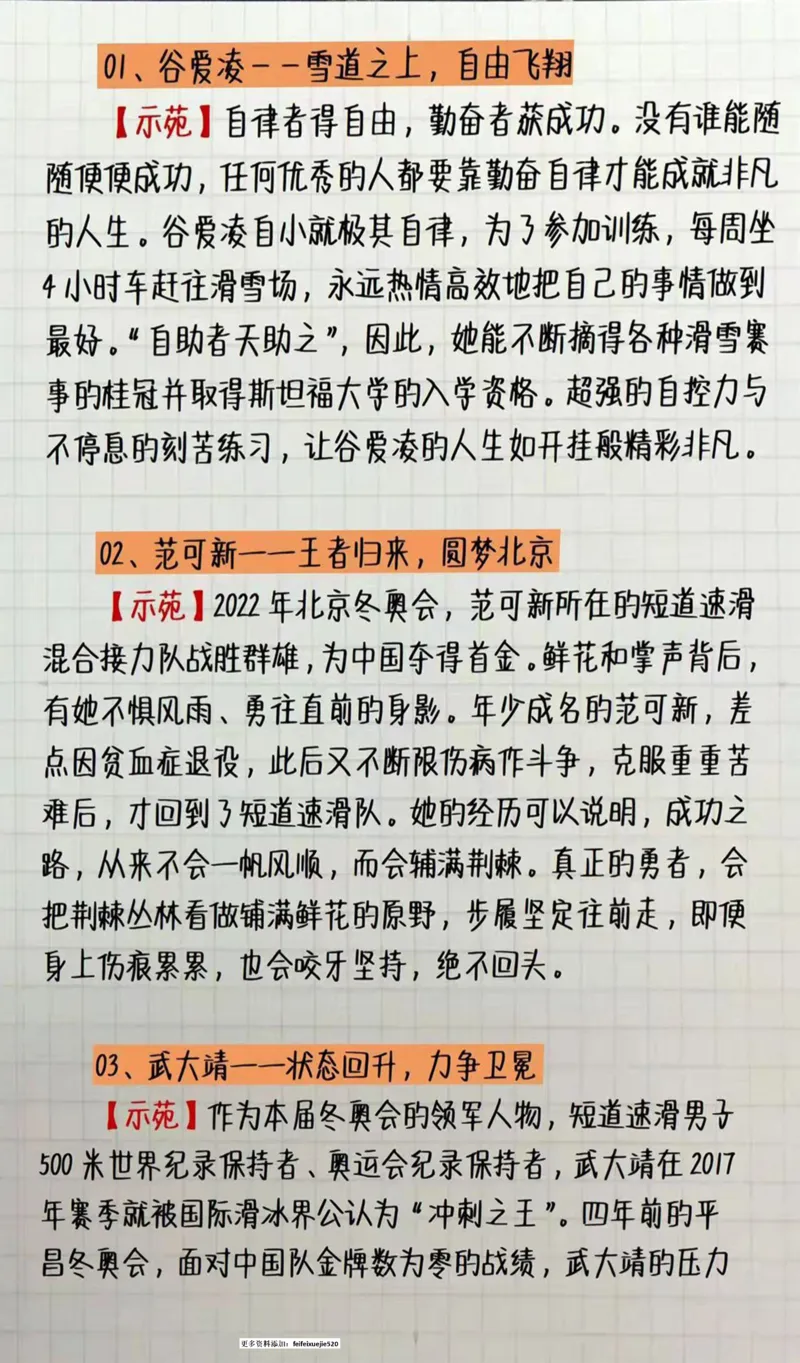 01、谷爱凌--雪道之上，自由飞翔
【示苑】自律者得自由，勤奋者获成功。没有谁能随
随便便成功，任何优秀的人都要靠勤奋自律才能成就非凡
的人生。谷爱凌自小就极其自律，为了参加训练，每周坐
4小时车赶往滑雪场，永远热情高效地把自己的事情做到
最好。“自助者天助之”，因此，她能不断摘得各种滑雪赛
事的桂冠并取得斯坦福大学的入学资格。超强的自控力与
不停息的刻苦练习，让谷爱凌的人生如开挂般精彩非凡。
02、范可新——王者归来，圆梦北京
【示苑】2022年北京冬奥会，范可新所在的短道速滑
混合接力队战胜群雄，为中国夺得首金。鲜花和掌声背后，
有她不惧风雨、勇往直前的身影。年少成名的范可新，差
点因贫血症退役，此后又不断跟伤病作斗争，克服重重苦
难后，才回到了短道速滑队。她的经历可以说明，成功之
路，从来不会一帆风顺，而会铺满荆棘。真正的勇者，会
把荆棘丛林看做铺满鲜花的原野，步履坚定往前走，即便
身上伤痕累累，也会咬牙坚持，绝不回头。
03、武大靖——状态回升，力争卫冕
【示苑】作为本届冬奥会的领军人物，短道速滑男子
500米世界纪录保持者、奥运会纪录保持者，武大靖在2017
年赛季就被国际滑冰界公认为“冲刺之王”。四年前的平
昌冬奥会，面对中国队金牌数为零的战绩，武大靖的压力
更多资料添加：feifeixuejie520